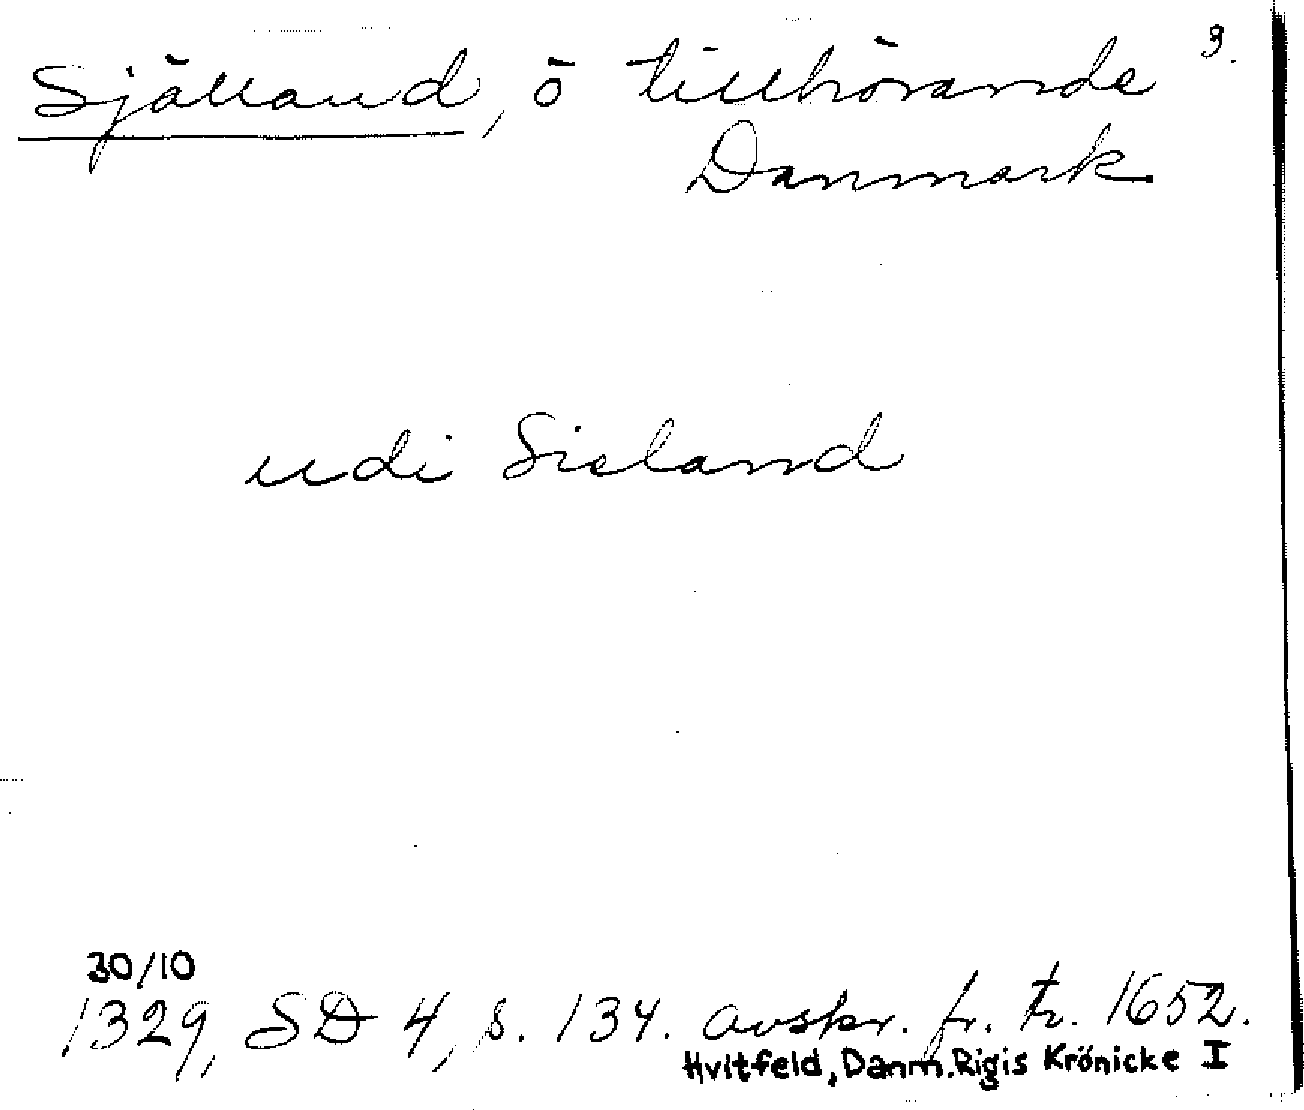 3.
Själland, ö tillhörande
Danmark
udi Sieland
30/10
1329, SD 4, s. 134. avskr. fr. tr. 1652.
Hvitfeld, Danm. Rigis Krönicke I